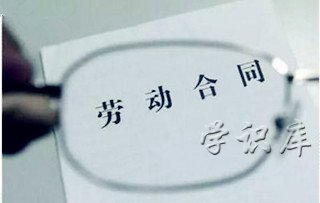 劳动合同
学识库